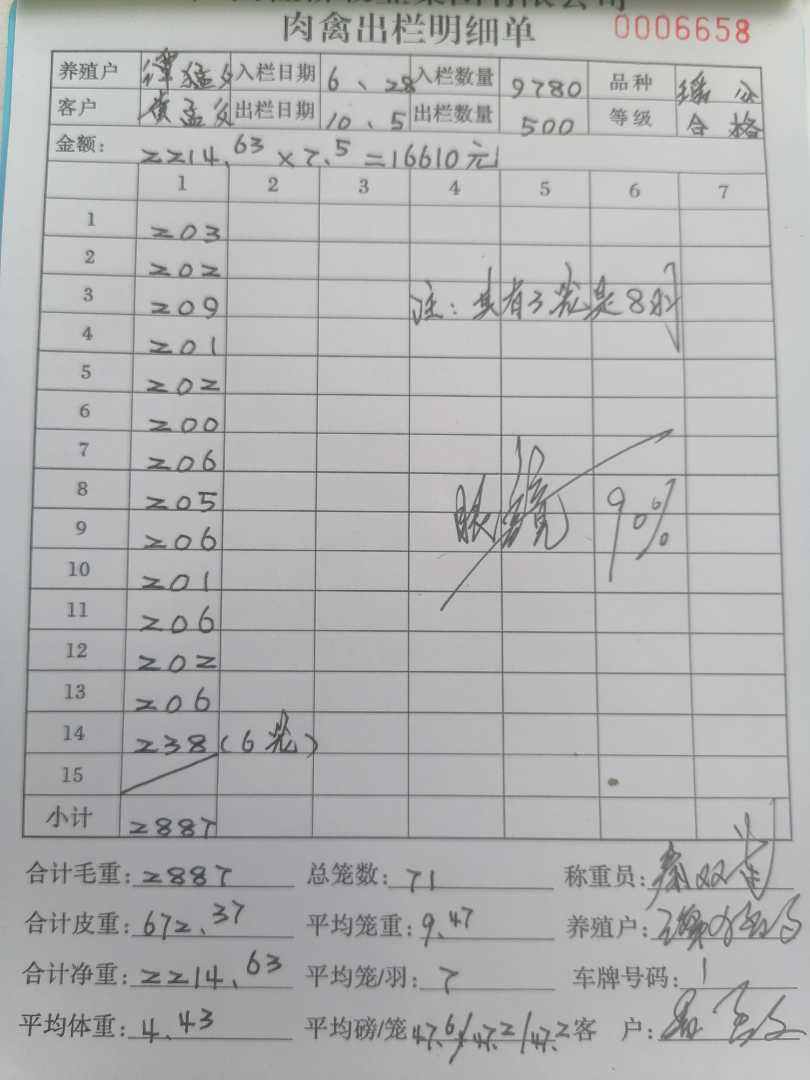 肉禽出栏明细单 0006658
养殖户 入栏日期 6、28 入栏数量 9780 品种 瑶公
客户 出栏日期 10、5 出栏数量 500 等级 合格
金额: 2214.63 × 7.5 = 16610元
1 2 3 4 5 6 7
1 203
2 202
3 209 注: 其有3笼是8羽
4 201
5 202
6 200
7 206
8 205 眼镜 90%
9 206
10 201
11 206
12 202
13 206
14 238 (6笼)
15
小计 2887
合计毛重: 2887 总笼数: 71 称重员:
合计皮重: 672.37 平均笼重: 9.47 养殖户:
合计净重: 2214.63 平均笼/羽: 7 车牌号码:
平均体重: 4.43 平均磅/笼 47.6/47.2/47.2 客 户: